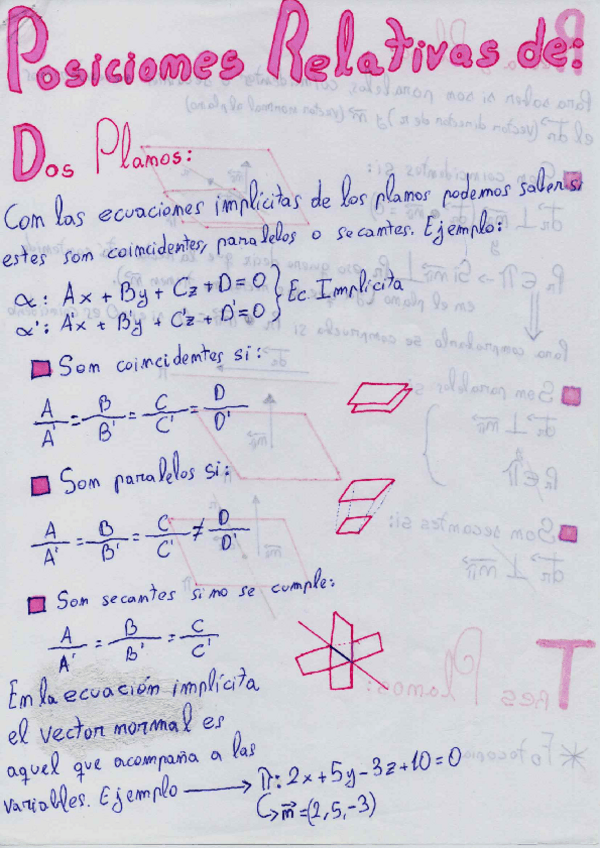 Posiciones Relativas de:
Dos Planos:
Con las ecuaciones implícitas de los planos podemos saber si
estes son coincidentes, paralelos o secantes. Ejemplo:
α: Ax + By + Cz + D = 0 } Ec. Implícita
α': A'x + B'y + C'z + D' = 0
Son coincidentes si:
A/A' = B/B' = C/C' = D/D'
Son paralelos si:
A/A' = B/B' = C/C' ≠ D/D'
Son secantes si no se cumple:
A/A' = B/B' = C/C'
En la ecuación implícita
el vector normal es
aquel que acompaña a las
variables. Ejemplo → π: 2x + 5y - 3z + 10 = 0
↳ n⃗ = (2, 5, -3)